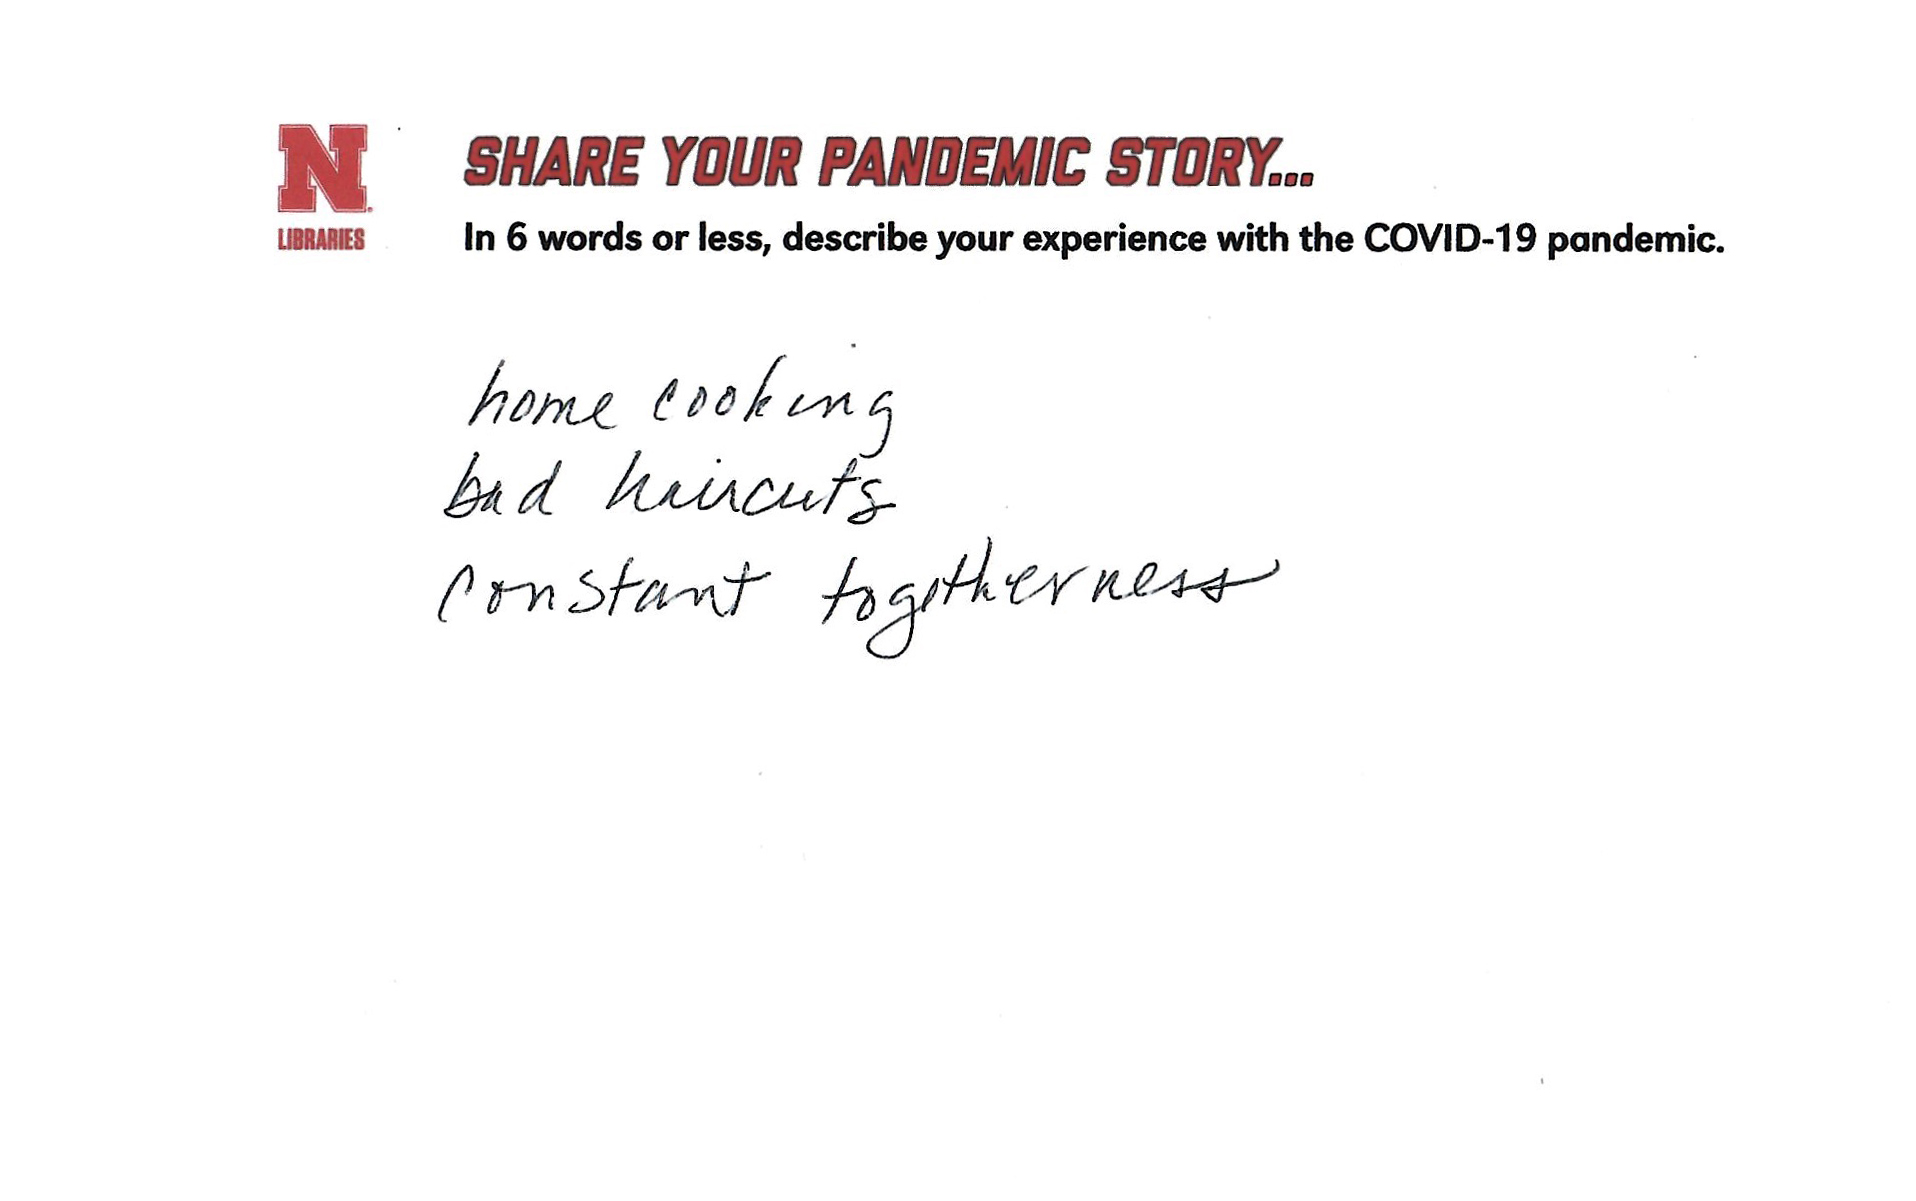 N
LIBRARIES
SHARE YOUR PANDEMIC STORY...
In 6 words or less, describe your experience with the COVID-19 pandemic.
home cooking
bad haircuts
constant togetherness